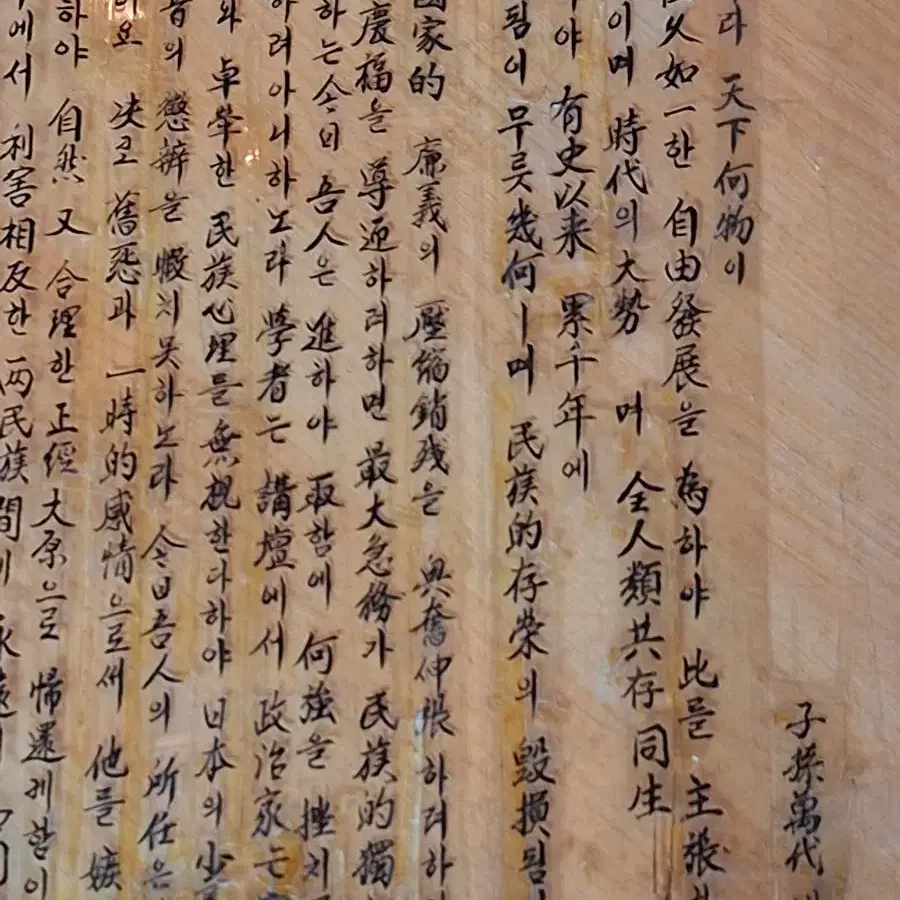 子孫萬代
라 天下何物이
久如一한 自由發展을 為하야 此를 主張
이며 時代의 大勢 며 全人類共存同生
야 有史以来 累千年에
됨이 무릇 幾何ㅣ며 民族的存榮의 毀損됨
國家的 廉義의 壓縮銷残을 興奮伸張하려하
慶福을 導迎하려하면 最大急務가 民族的獨
하는 今日 吾人은 進하야 取함에 何強을 挫치
하려아니하노라 學者는 講壇에서 政治家는
와 卓犖한 民族心理를 無視한다하야 日本의 少
昔의 懲辨을 暇치못하노라 今日吾人의 所任은
이요 决코 舊怨과 一時的感情으로써 他를 嫉
하야 自然 又 合理한 正經大原으로 歸還케함이
에서 利害相反한 两民族間에